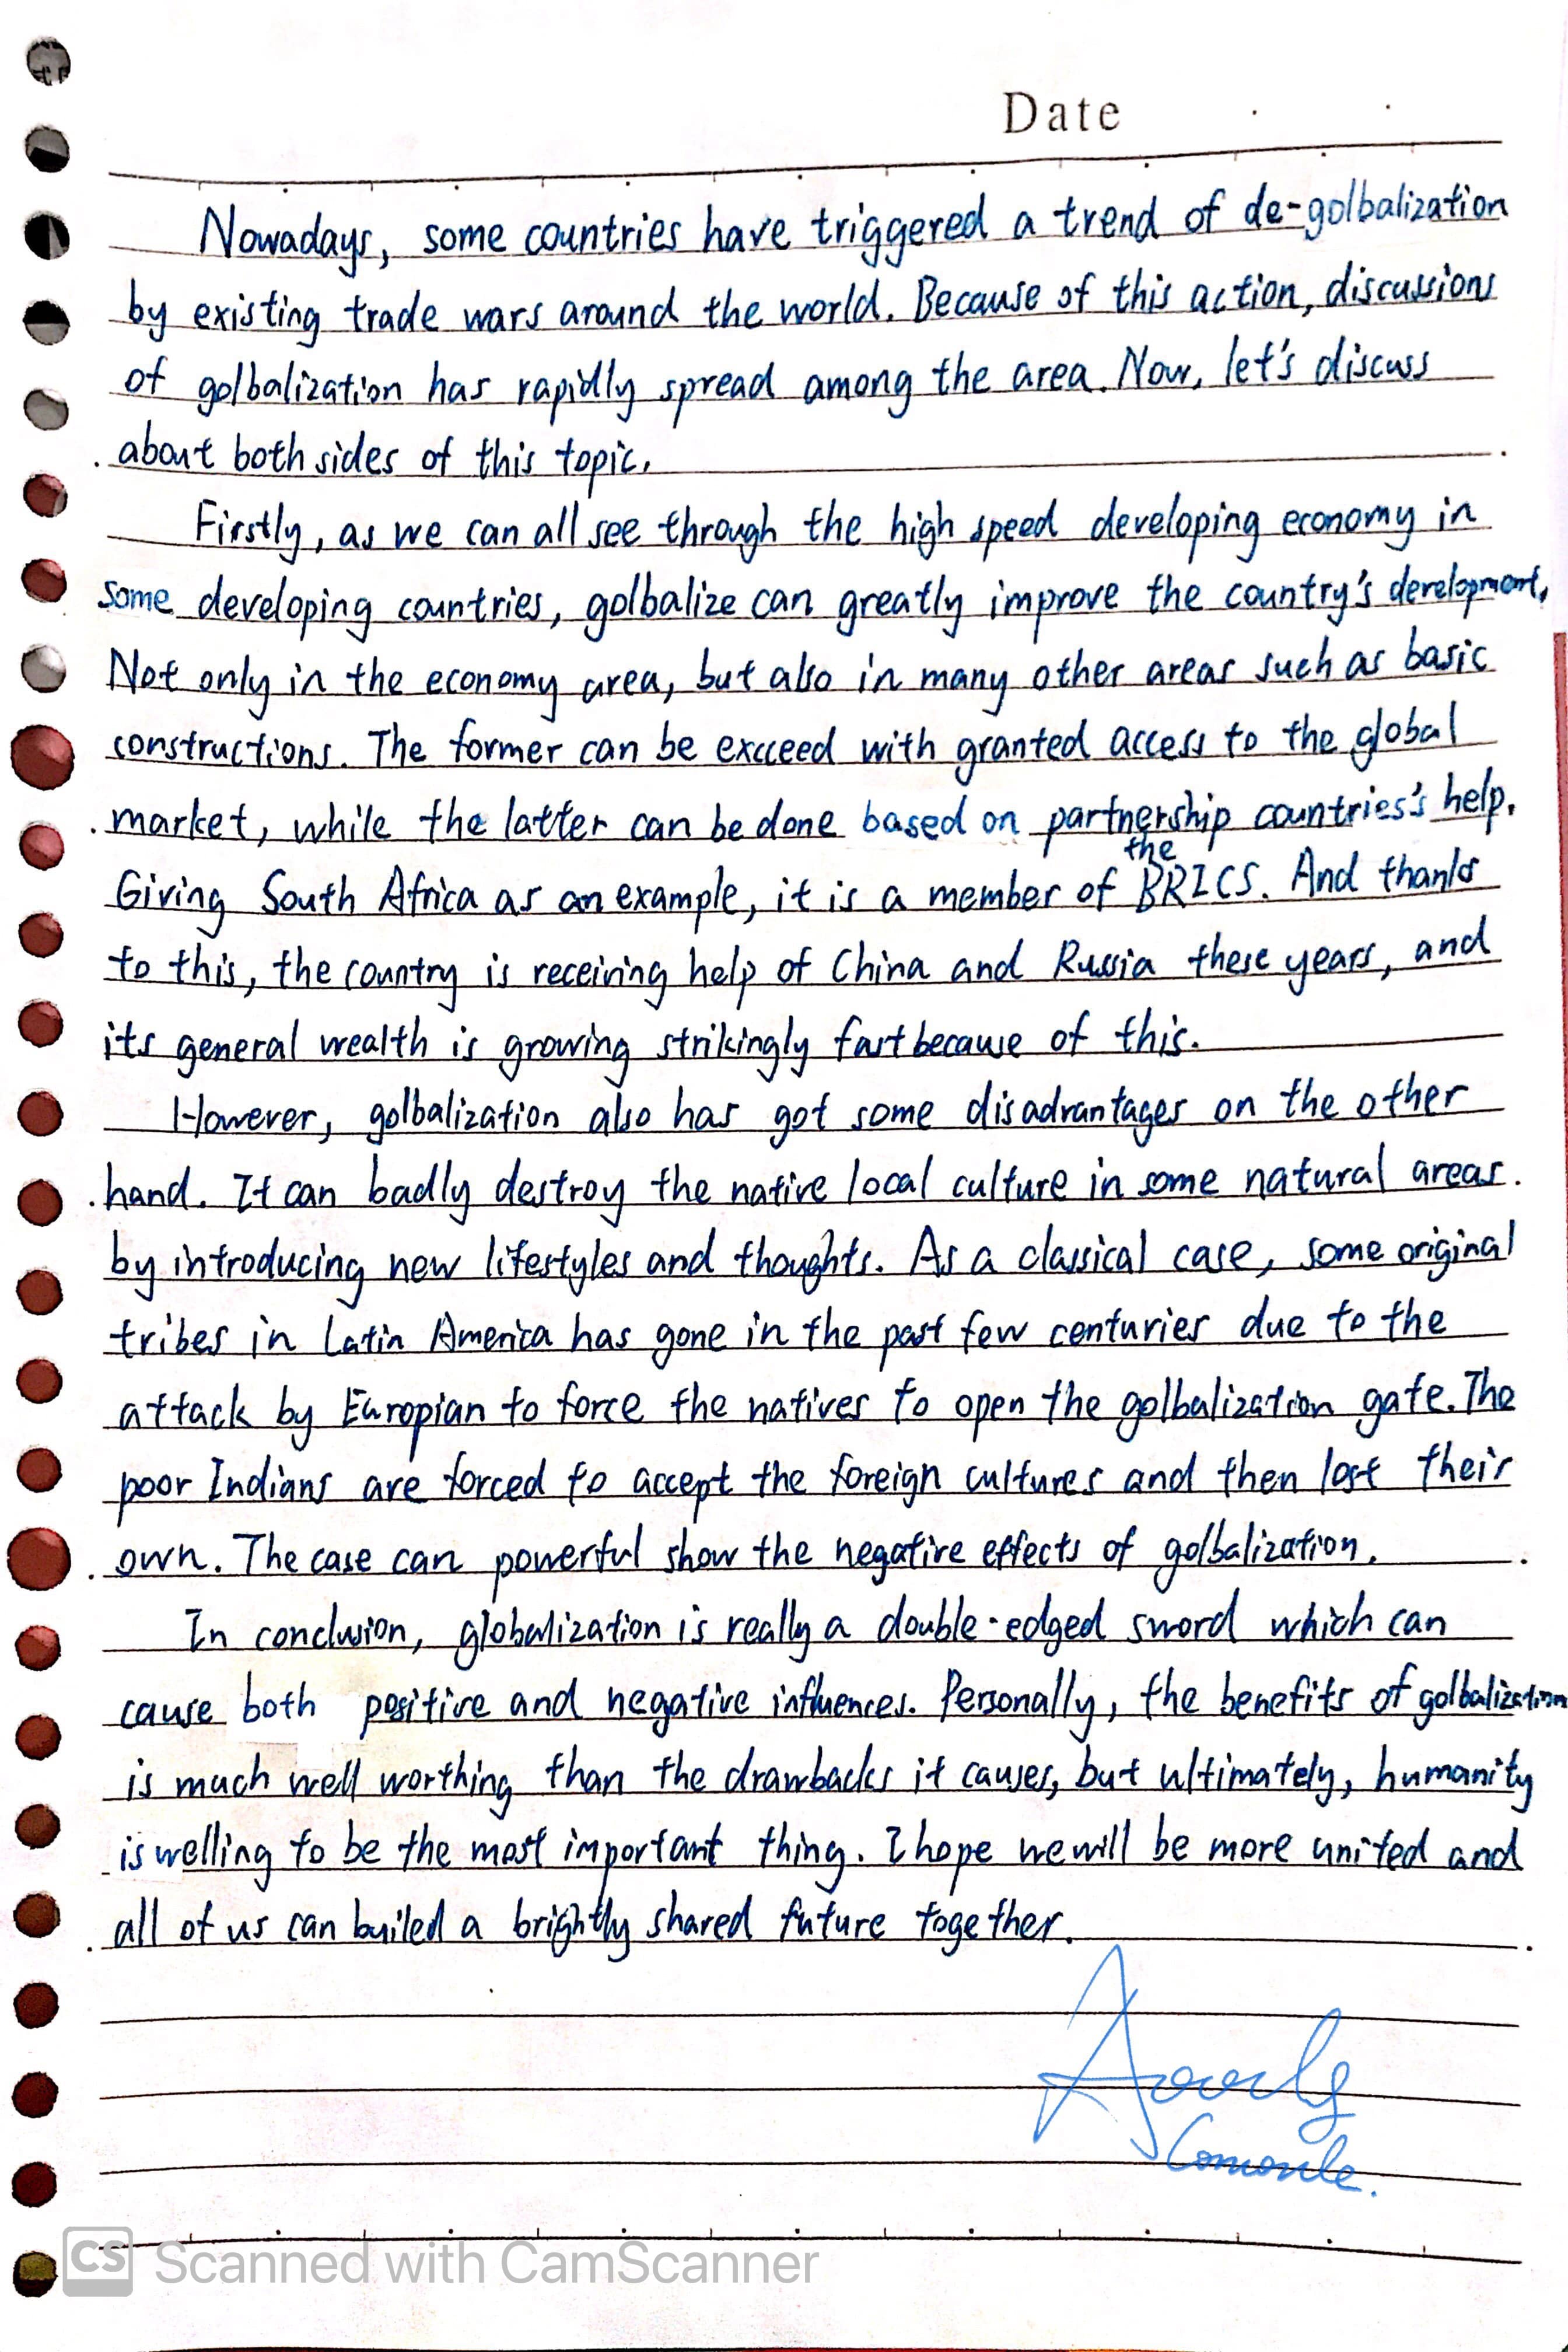 Date
Nowadays, some countries have triggered a trend of de-golbalization
by existing trade wars around the world. Because of this action, discussions
of golbalization has rapidly spread among the area. Now, let's discuss
about both sides of this topic.
Firstly, as we can all see through the high speed developing economy in
some developing countries, golbalize can greatly improve the country's development,
Not only in the economy area, but also in many other areas such as basic
constructions. The former can be exceed with granted access to the global
market, while the latter can be done based on partnership countries's help.
the
Giving South Africa as an example, it is a member of BRICS. And thanks
to this, the country is receiving help of China and Russia these years, and
its general wealth is growing strikingly fast because of this.
However, golbalization also has got some disadvantages on the other
hand. It can badly destroy the native local culture in some natural areas.
by introducing new lifestyles and thoughts. As a classical case, some original
tribes in Latin America has gone in the past few centuries due to the
attack by Europian to force the natives to open the golbalization gate. The
poor Indians are forced to accept the foreign cultures and then lost their
own. The case can powerful show the negative effects of golbalization.
In conclusion, globalization is really a double-edged sword which can
cause both positive and negative influences. Personally, the benefits of golbalization
is much well worthing than the drawbacks it causes, but ultimately, humanity
is welling to be the most important thing. I hope we will be more united and
all of us can builed a brightly shared future together.
CS Scanned with CamScanner